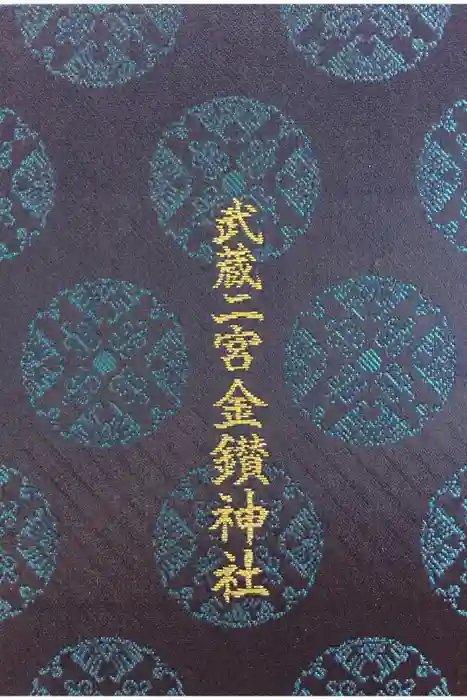 武蔵二宮金鑚神社